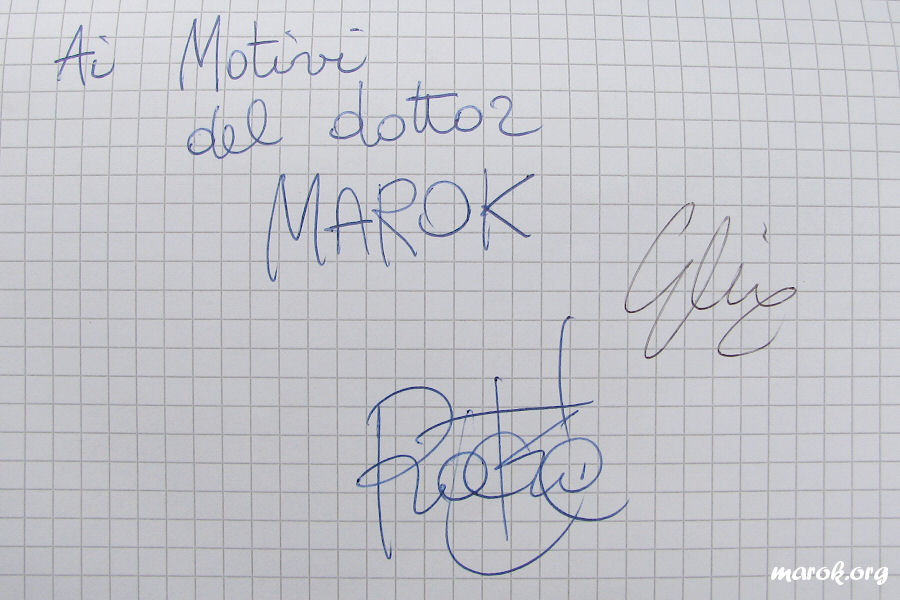 Ai Motivi
del dottor
MAROK
marok.org